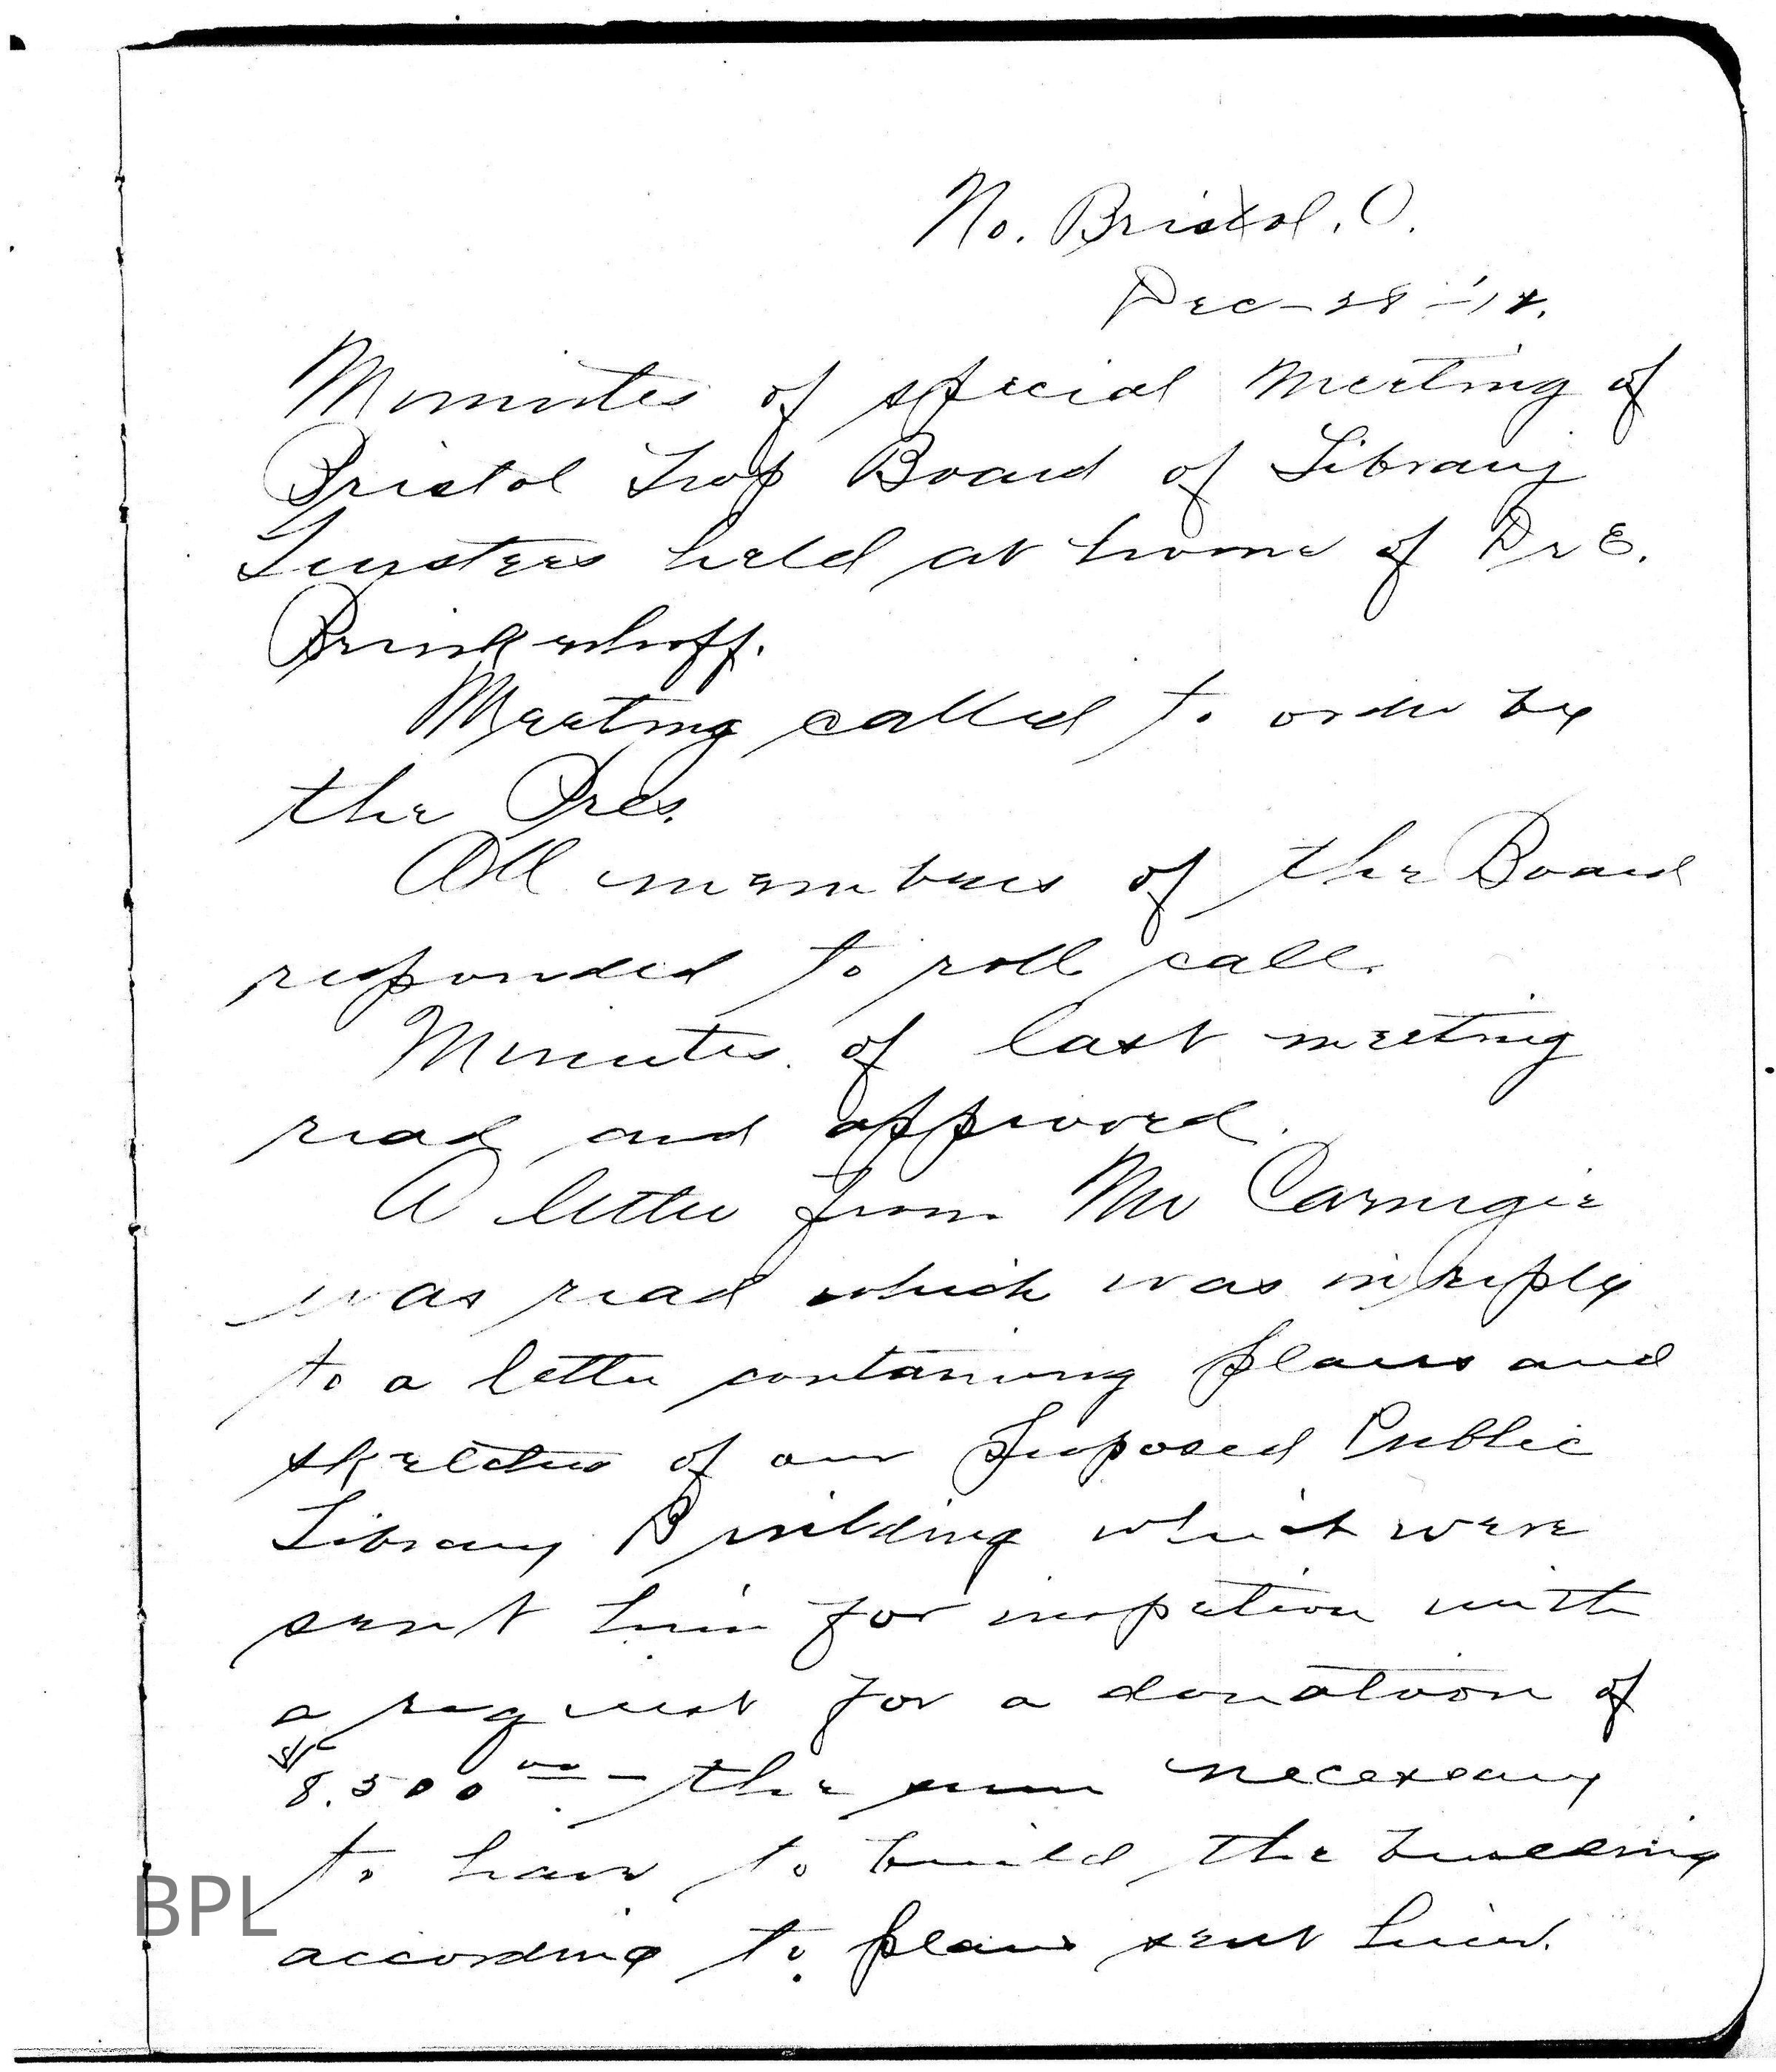 No. Bristol, O.
Dec - 28 - '12.
Minutes of special meeting of
Bristol Twp Board of Library
Trustees held at home of Dr E.
Brinkerhoff.
Meeting called to order by
the Pres.
All members of the Board
responded to roll call.
Minutes of last meeting
read and approved.
A letter from Mr Carnegie
was read which was in reply
to a letter containing plans and
sketches of our proposed Public
Library Building which were
sent him for inspection with
a request for a donation of
8,500 00 - the sum necessary
to have to build the building
according to plans sent him.
BPL